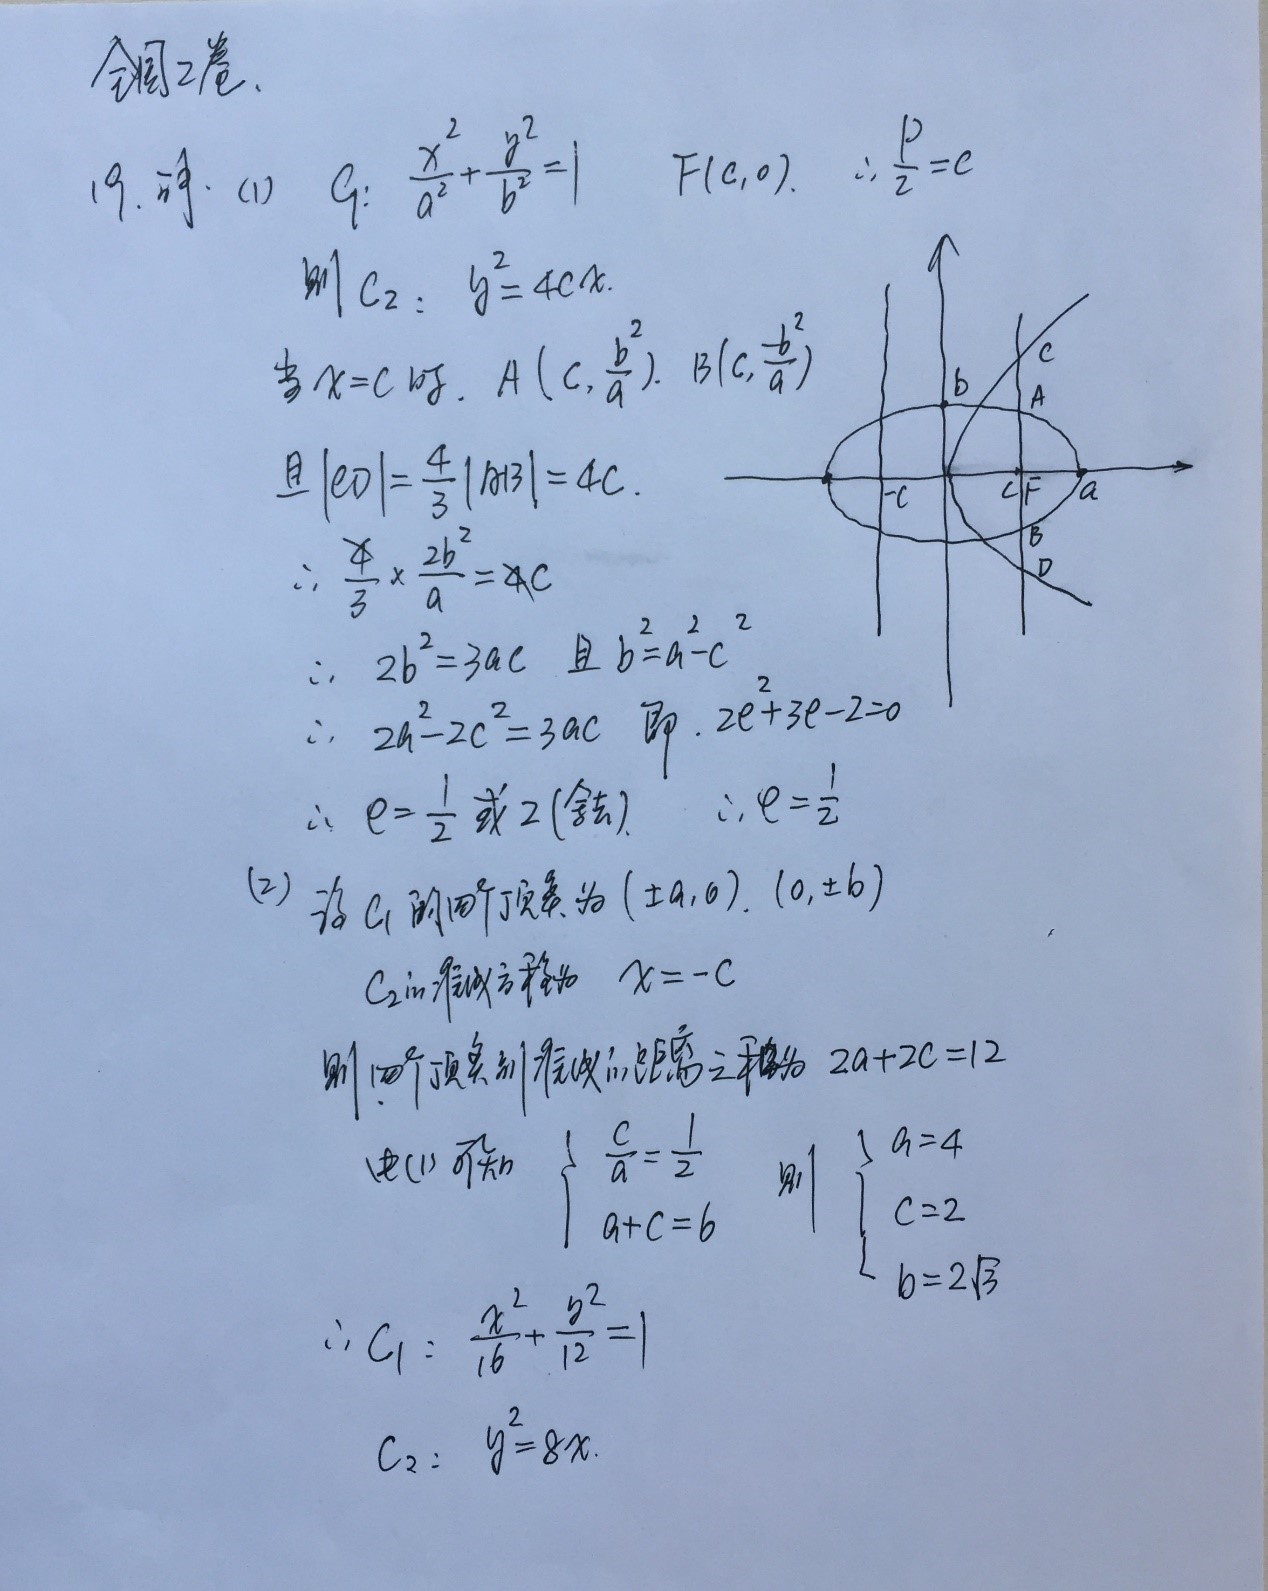 全国2卷.
19.解.(1) C₁: x²/a² + y²/b² = 1 F(c,0). ∴ p/2 = c
则 C₂: y² = 4cx.
当 x=c 时. A(c, b²/a). B(c, -b²/a)
且 |CD| = 4/3 |AB| = 4c.
∴ 4/3 × 2b²/a = 4c
∴ 2b² = 3ac 且 b² = a² - c²
∴ 2a² - 2c² = 3ac 即. 2e² + 3e - 2 = 0
∴ e = 1/2 或 2 (舍去). ∴ e = 1/2
(2) 设 C₁ 的四个顶点为 (±a,0). (0,±b)
C₂的准线方程为 x = -c
则四个顶点到准线的距离之和为 2a+2c=12
由(1)可知 { c/a = 1/2 则 { a=4
a+c=6 c=2
b=2√3
∴ C₁: x²/16 + y²/12 = 1
C₂: y² = 8x.
b
C
A
-c
c
F
a
B
D